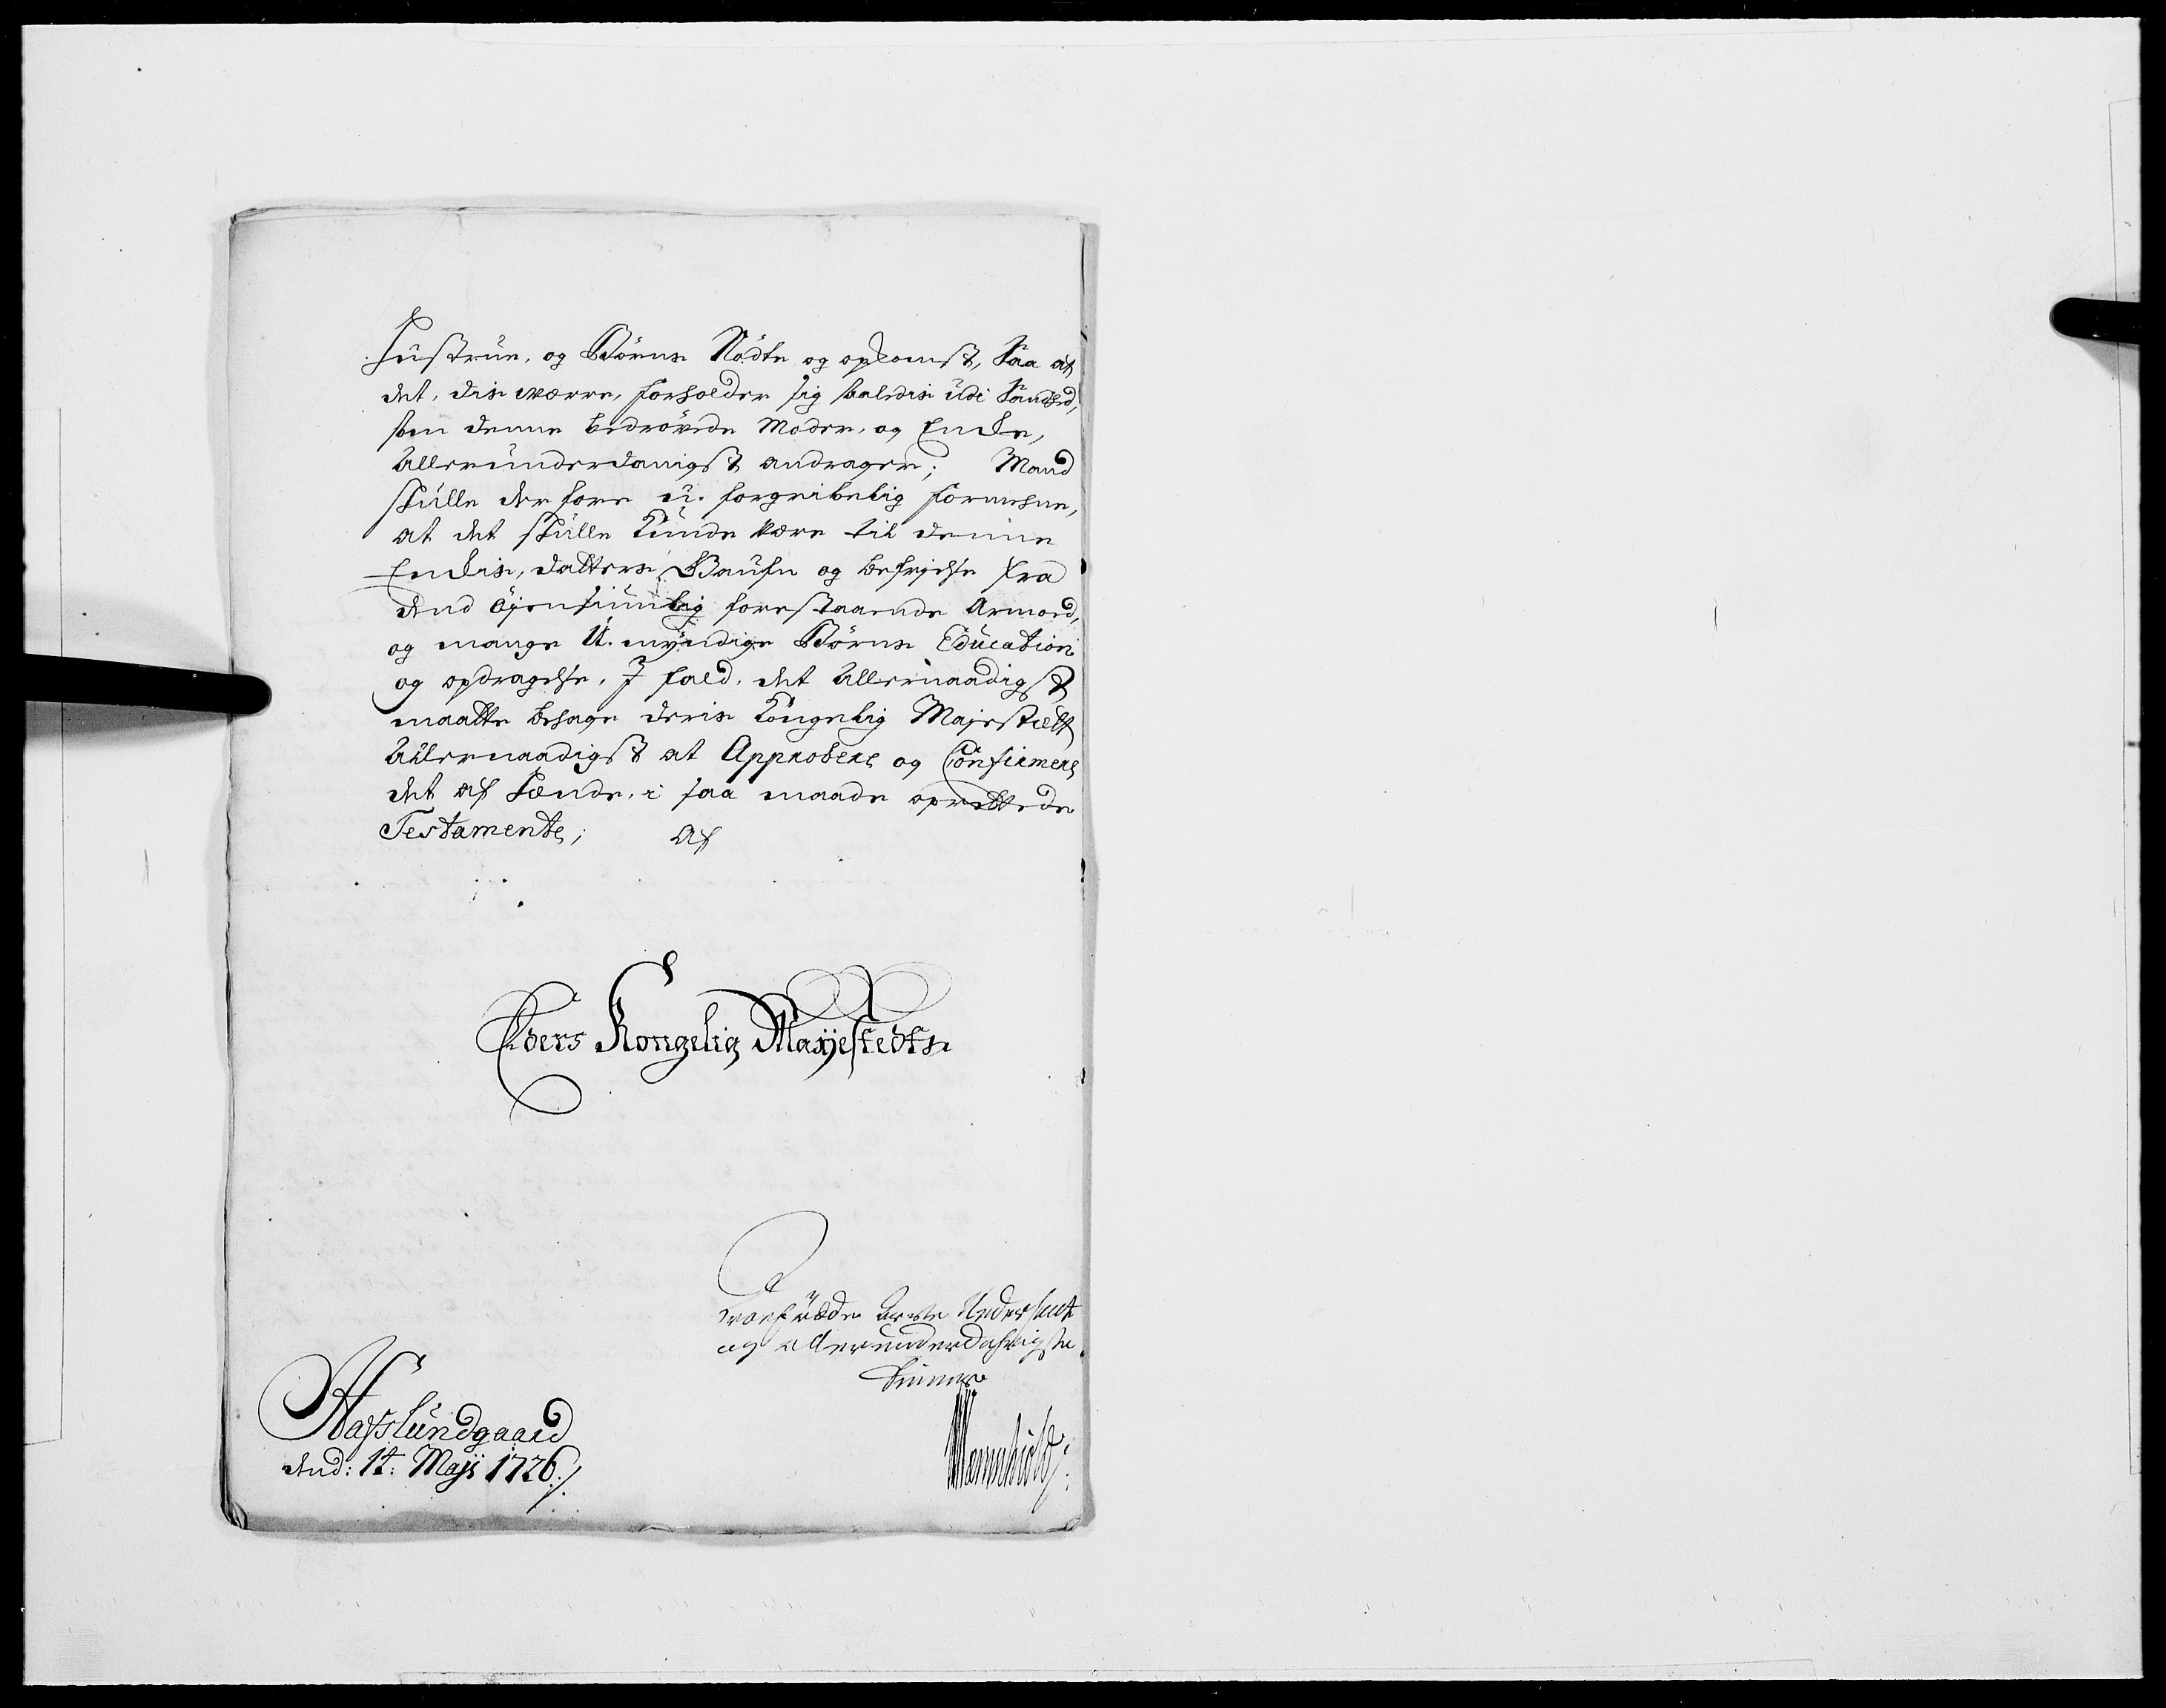 Hustrue, og Børns Nødte og opkomst, Saa at
det, dis værre, forholder sig saaledis udi Sandhed,
som denne bedrøvede Moder, og Encke,
Allerunderdanigst andrager; Mand
skulle der fore u. forgribelig formeene,
at det skulle kunde være til denne
Enckis, datters Baufn og befrielse fra
dend øjensiunlig forestaaende Armod,
og mange U. myndige Børns Education
og opdragelse, I fald, det Allernaadigst
maatte behage deris Kongelig Majestætt
Allernaadigst at Approbere og Confirmere
det af hænde, i saa maade oprettede
Testamente; Af
Eders Kongelig Mayestedts
troe Undersaat
og allerunderdanigste
tienner
Hafslundgaard
dend: 14: Maji 1726 ./.